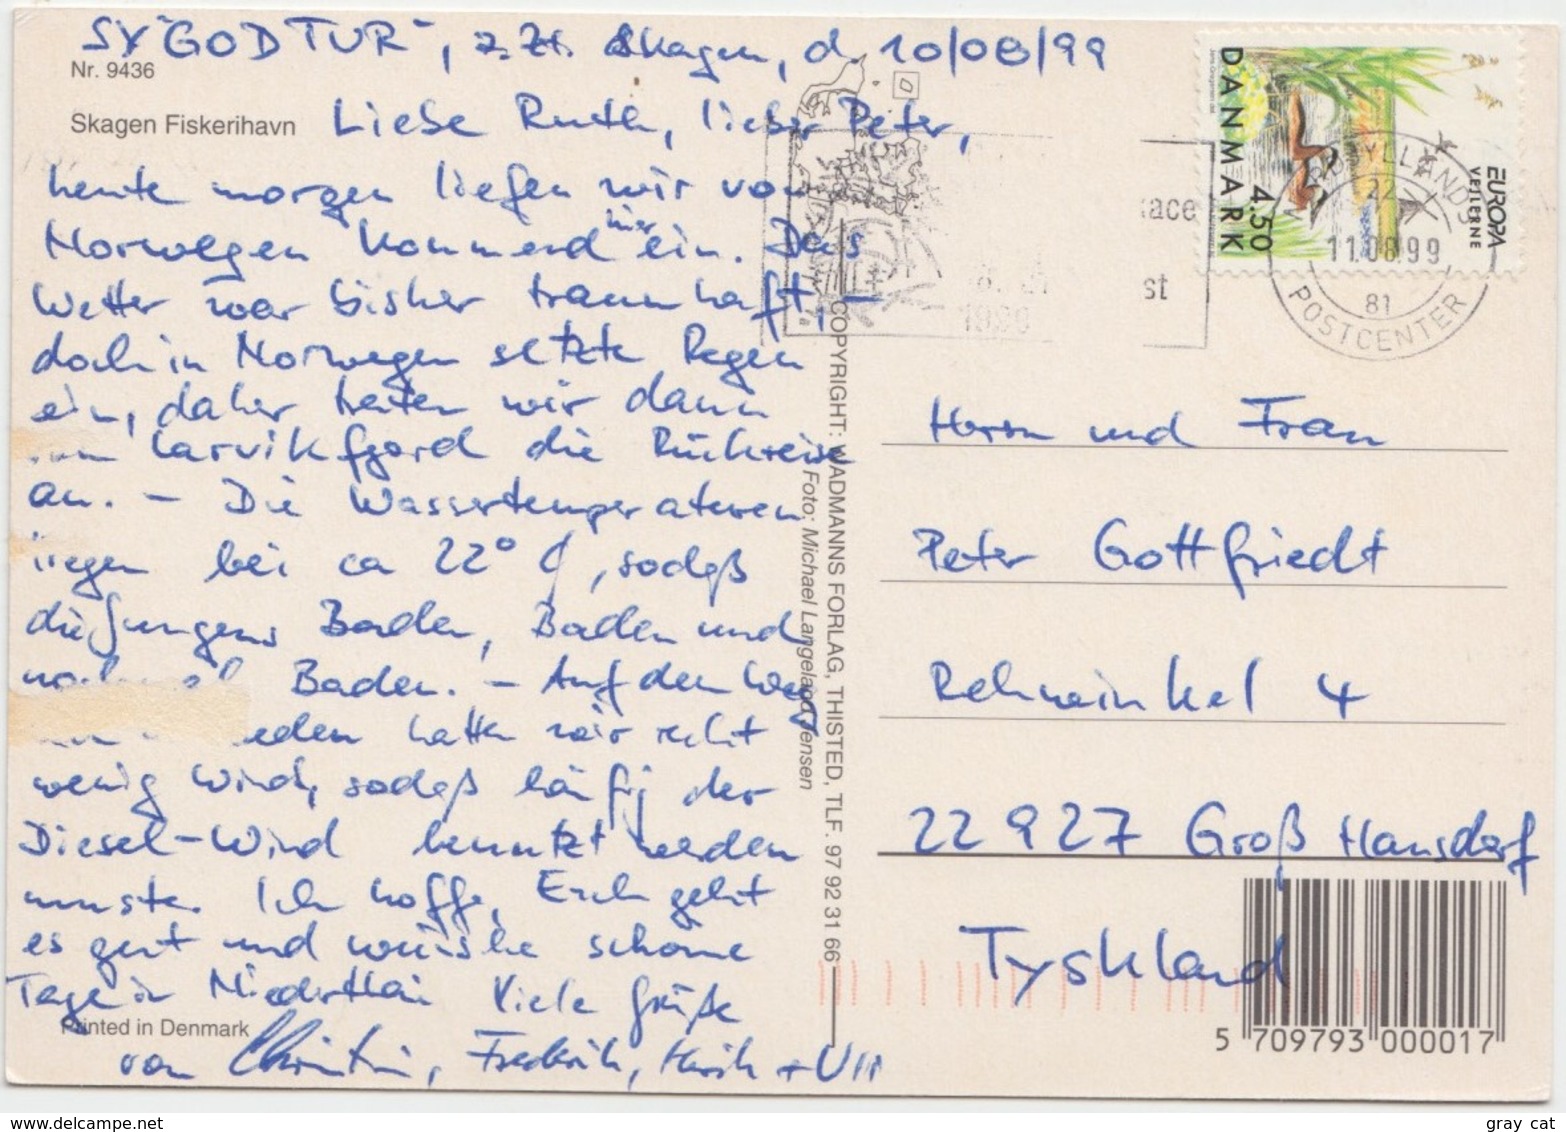 SY "GOD TUR", z. Zt. Skagen, d. 10/08/99
Nr. 9436
Skagen Fiskerihavn
Liebe Ruth, lieber Peter,
heute morgen liefen wir von
Norwegen kommend hier ein. Das
Wetter war bisher traumhaft,
doch in Norwegen setzte Regen
ein, daher treten wir dann
vom Larvikfjord die Rückreise
an. - Die Wassertemperaturen
liegen bei ca 22° C, sodaß
die Jungens Baden, Baden und
nochmal Baden. - Auf dem Weg
hatten wir recht
wenig Wind, sodaß häufig der
Diesel-Wind benutzt werden
musste. Ich hoffe, Euch geht
es gut und wünsche schöne
Tage in Viele Grüße
von Christin, Frederik, + Uli
Printed in Denmark
COPYRIGHT: WADMANNS FORLAG, THISTED, TLF. 97 92 31 66
Foto: Michael Langeland Jensen
DANMARK
4.50
EUROPA
VEJLERNE
22
11.08.99
81
POSTCENTER
1999
Herrn und Frau
Peter Gottfriedt
Rehwinkel 4
22927 Groß Hansdorf
Tyskland
5 709793 000017
gray cat